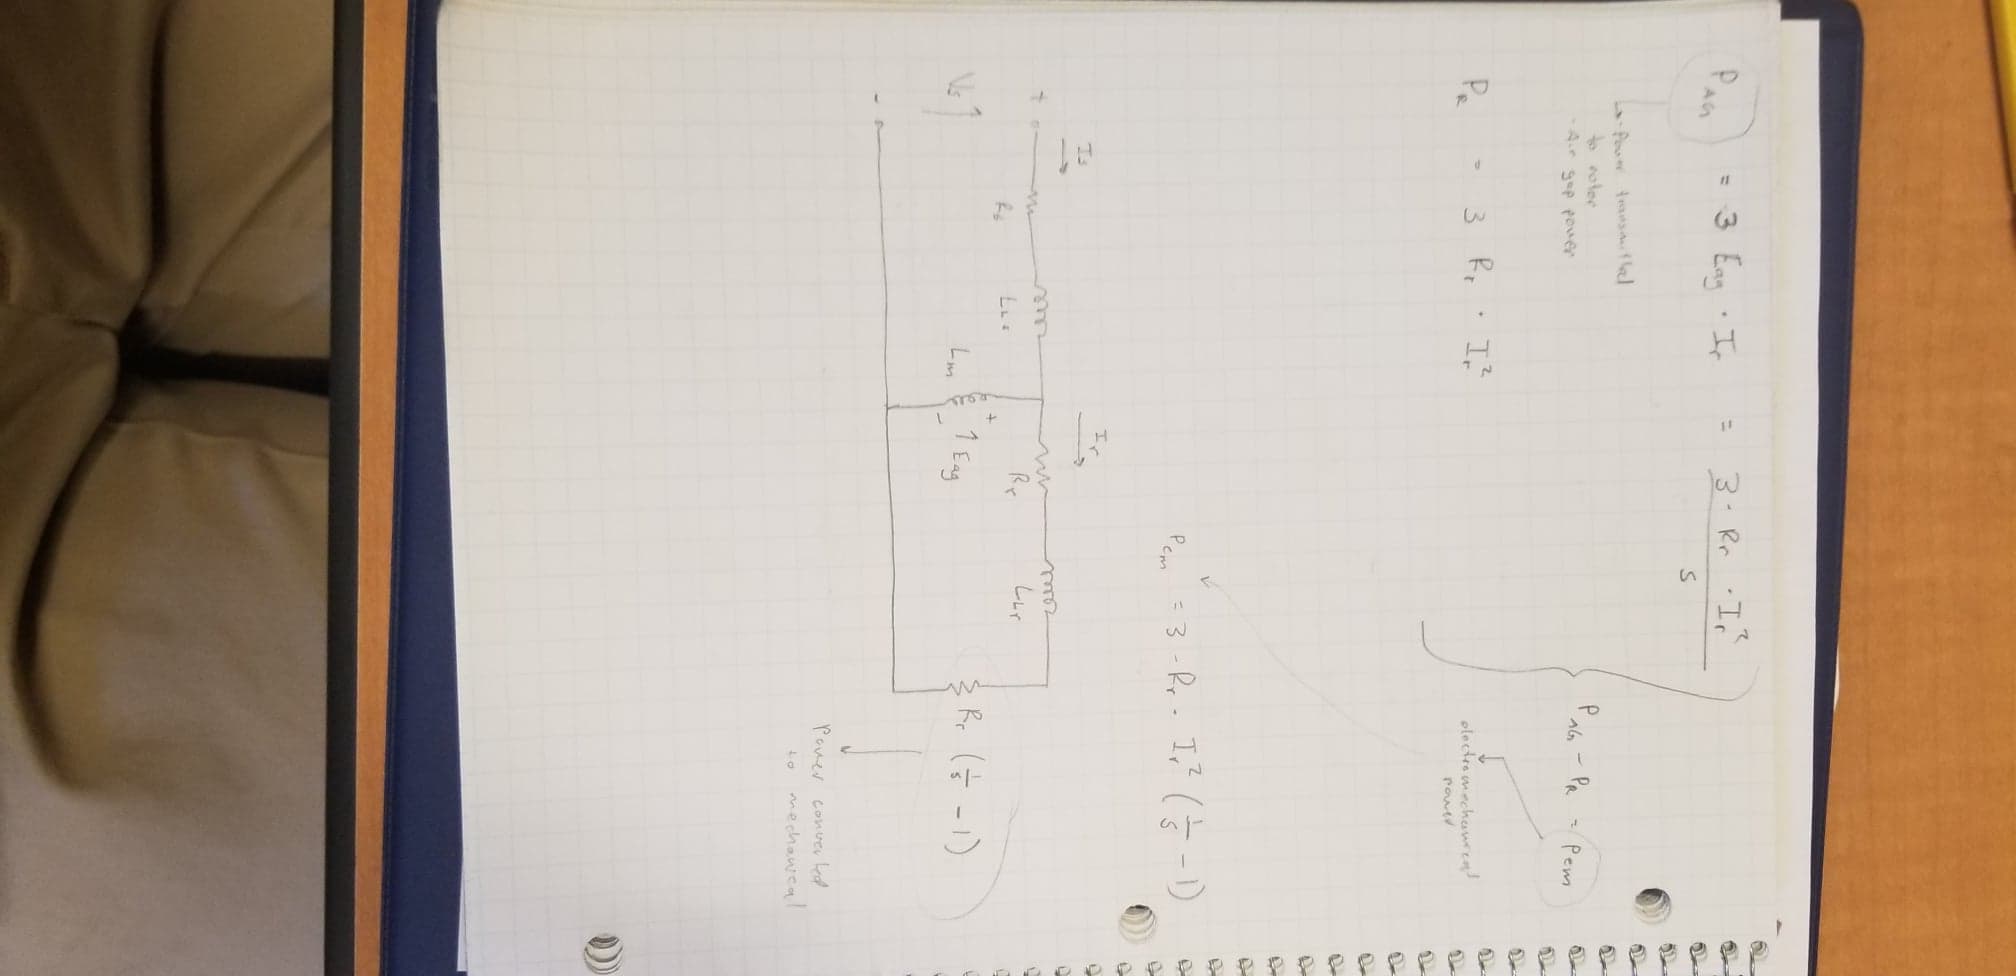 P_AG = 3 Eag · Ir = 3 · Rr · Ir² / s
↳ · Power transmitted
to rotor
· Air gap power
P_AG - P_R = Pem
electromechanical
power
P_R = 3 Rr · Ir²
Pem = 3 - Rr · Ir² (1/s - 1)
Is →
Ir →
+
Rs
LLs
Rr
LLr
Vs ↑
Lm
+ ↑ Eag -
Rr (1/s - 1)
-
Power converted
to mechanical